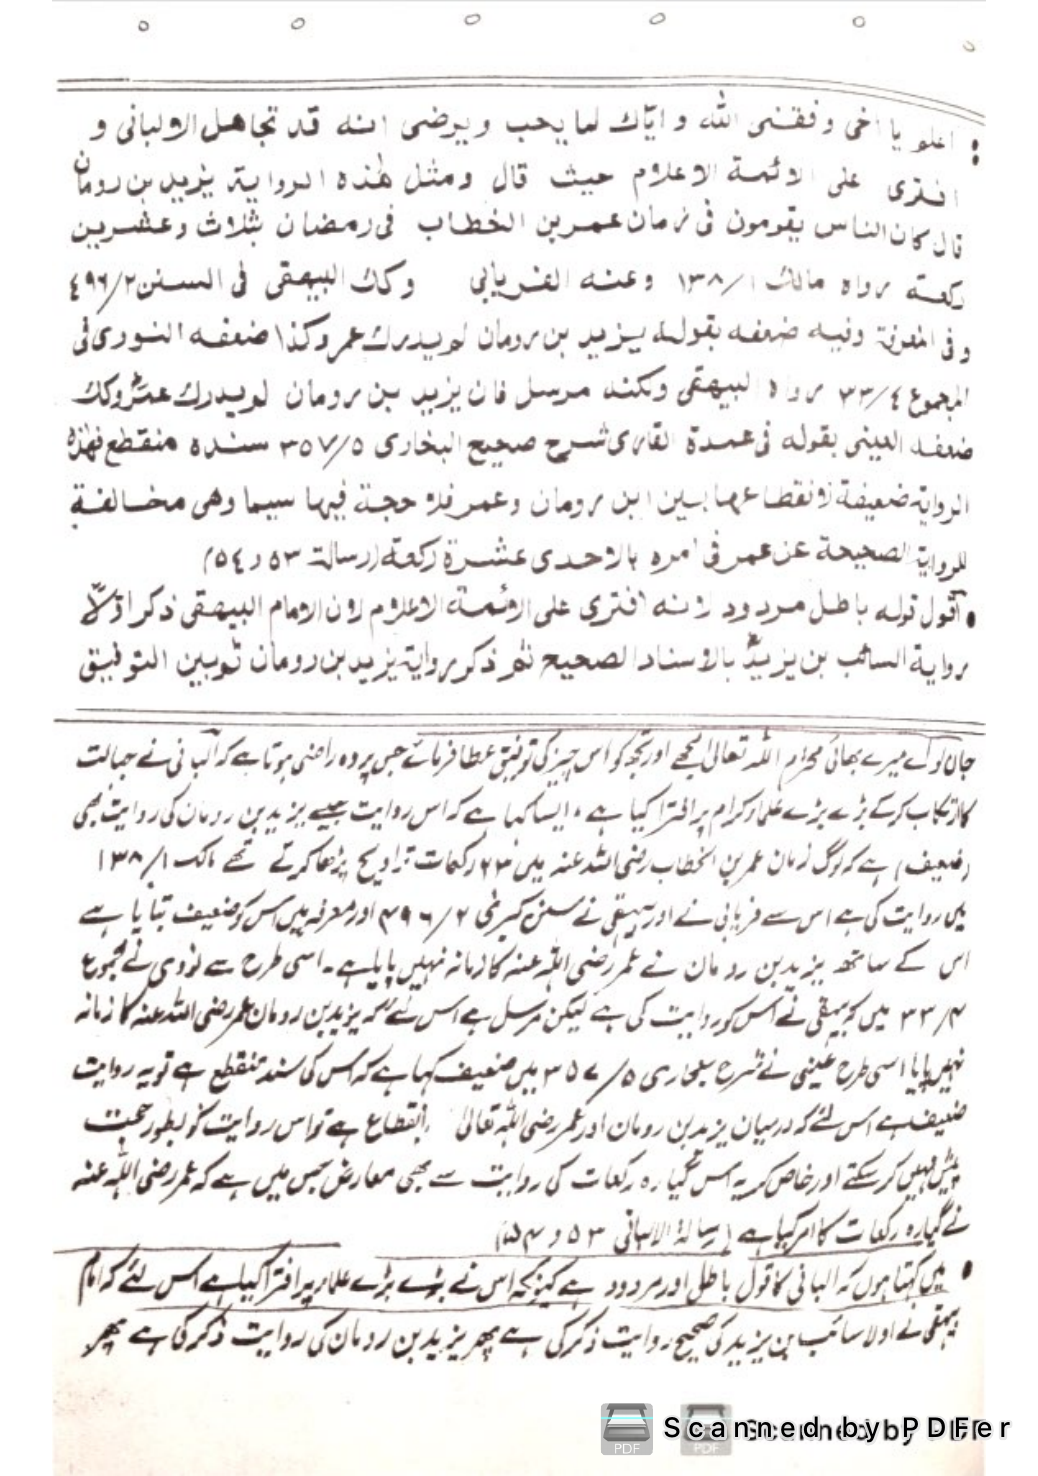 اعلم یا اخی وفقنی اللہ و ایاك لما یحب ویرضی انه قد تجاهل الالبانی و
افتری علی الائمة الاعلام حیث قال ومثل هذه الروایة یزید بن رومان
قال کان الناس یقومون فی زمان عمر بن الخطاب فی رمضان بثلاث وعشرین
رکعة رواه مالك ۱/۱۳۸ وعنه الفریابی وکذا البیهقی فی السنن ۲/٤٩٦
وفی المعرفة وفیه ضعفه بقوله یزید بن رومان لم یدرك عمر وکذا ضعفه النووی فی
المجموع ٤/۳۳ رواه البیهقی ولکنه مرسل فان یزید بن رومان لم یدرك عمر وکذا
ضعفه العینی بقوله فی عمدة القاری شرح صحیح البخاری ۵/۳۵۷ سنده منقطع فهذه
الروایة ضعیفة لانقطاعها بین ابن رومان وعمر فلا حجة فیها سیما وهی مخالفة
للروایة الصحیحة عن عمر فی امره بالاحدی عشرة رکعة (رسالة ۵۳ و ۵٤)
• اقول قوله باطل مردود لانه افتری علی الائمة الاعلام لان الامام البیهقی ذکر اولاً
روایة السائب بن یزید بالاسناد الصحیح ثم ذکر روایة یزید بن رومان ثم بین التوفیق
جان لو اے میرے بھائی محترم اللہ تعالیٰ مجھے اور تجھ کو اس چیز کی توفیق عطا فرمائے جس پر وہ راضی ہوتا ہے کہ البانی نے جہالت
کا ارتکاب کرکے بڑے بڑے علماء کرام پر افترا کیا ہے، ایسا کہا ہے کہ اس روایت جیسے یزید بن رومان کی روایت بھی
(ضعیف) ہے کہ لوگ زمان عمر بن الخطاب رضی اللہ عنہ میں ۲۳ رکعات تراویح پڑھا کرتے تھے مالک ۱/۱۳۸
میں روایت کی ہے اس سے فریابی نے اور بیہقی نے سنن کبریٰ ۲/۴۹۶ اور معرفہ میں اس کو ضعیف بتایا ہے
اس کے ساتھ یزید بن رومان نے عمر رضی اللہ عنہ کا زمانہ نہیں پایا ہے۔ اسی طرح سے نووی نے مجموع
۴/۳۳ میں کہ بیہقی نے اس کو روایت کی ہے لیکن مرسل ہے اس لئے کہ یزید بن رومان عمر رضی اللہ عنہ کا زمانہ
نہیں پایا اسی طرح عینی نے شرح بخاری ۵/۳۵۷ میں ضعیف کہا ہے کہ اس کی سند منقطع ہے تو یہ روایت
ضعیف ہے اس لئے کہ درمیان یزید بن رومان اور عمر رضی اللہ تعالیٰ انقطاع ہے تو اس روایت کو بطور حجت
پیش نہیں کر سکتے اور خاص کر یہ اس گیارہ رکعات کی روایت سے بھی معارض جس میں ہے کہ عمر رضی اللہ عنہ
نے گیارہ رکعات کا امر کیا ہے (رسالۃ الالبانی ۵۳ و ۵۴)
• میں کہتا ہوں کہ البانی کا قول باطل اور مردود ہے کیونکہ اس نے بڑے بڑے علماء پر افترا کیا ہے اس لئے کہ امام
بیہقی نے اولا سائب بن یزید کی صحیح روایت ذکر کی ہے پھر یزید بن رومان کی روایت ذکر کی ہے پھر
Scanned by PDFer